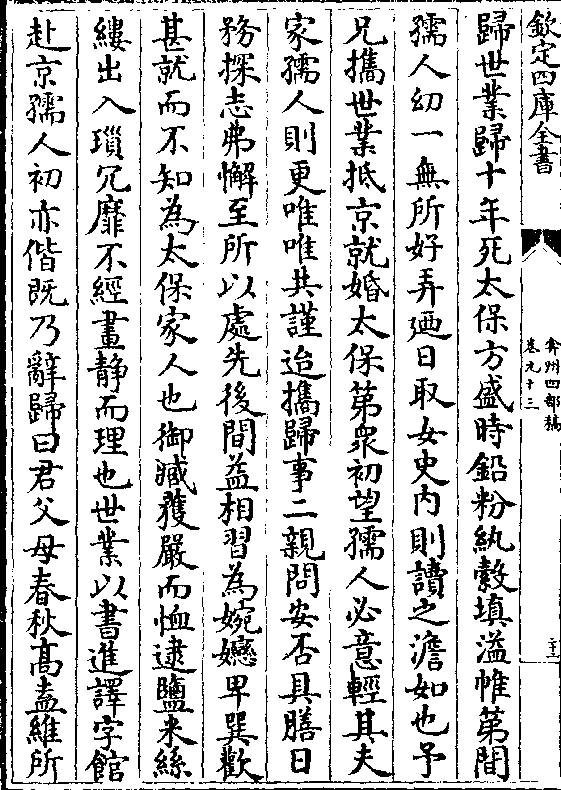 欽定四庫全書
弇州四部稿
卷九十三
歸世業歸十年死太保方盛時鉛粉紈縠填溢帷第間
孺人幼一無所好弄廼日取女史内則讀之澹如也予
兄攜世業抵京就婚太保第衆初望孺人必意輕其夫
家孺人則更唯唯共謹迨攜歸事二親問安否具膳日
務探志弗懈至所以處先後間益相習為婉孌卑巽歡
甚就而不知為太保家人也御臧獲嚴而恤逮鹽米絲
縷出入瑣冗靡不經畫静而理也世業以書進譯字館
赴京孺人初亦偕既乃辭歸曰君父母春秋髙盍維所